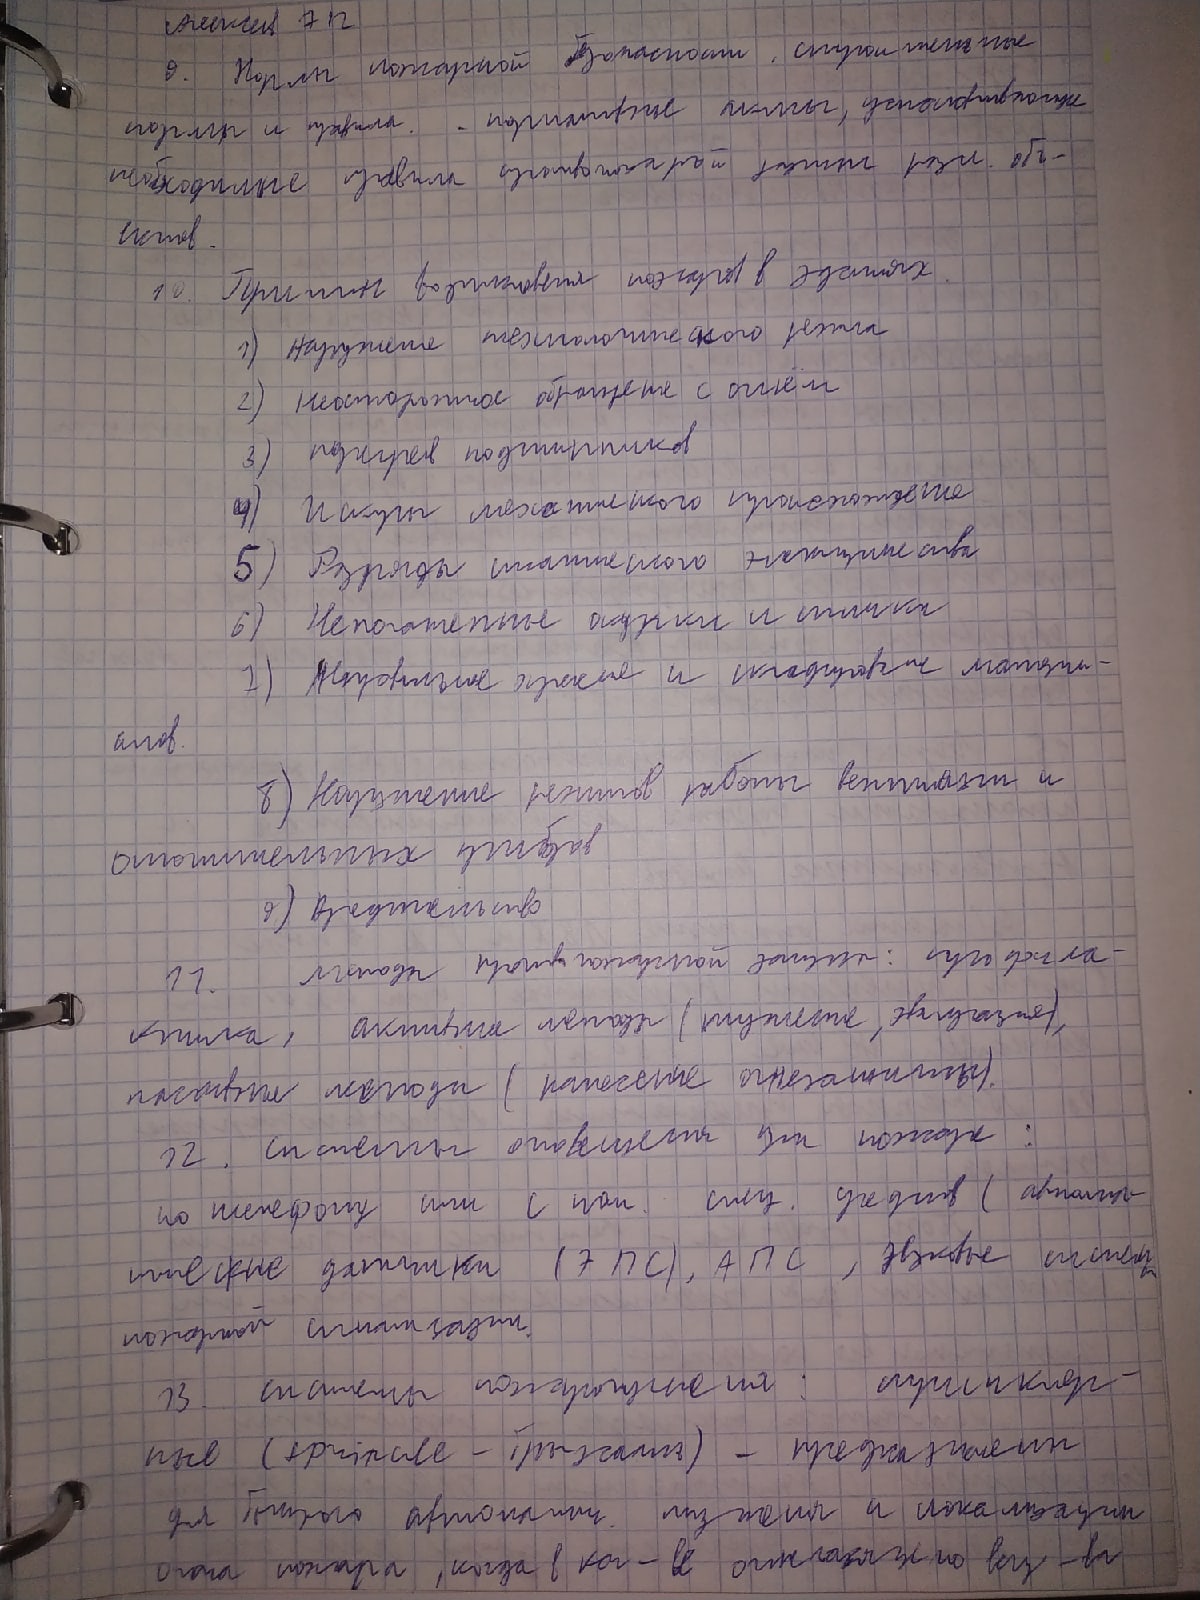 Алексеев 7 П
9. Нормы пожарной безопасности, строительные
нормы и правила. - нормативные акты, устанавливающие
необходимые правила противопожарной разл. объ-
ектов.
10. Причины возникновения пожаров в зданиях.
1) Нарушение технологического режима
2) Неосторожное обращение с огнём
3) перегрев подшипников
4) Искры механического происхождение
5) Разряды статического электричества
6) Непогашенные окурки и спички
7) Неправильное хранение и складирование матери-
алов.
8) Нарушение режимов работы вентиляции и
отопительных приборов
9) Вредительство
11. методы противопожарной защиты: профила-
ктика, активные методы (тушение, эвакуация),
пассивные методы (нанесение огнезащиты).
12. системы оповещения при пожаре:
по телефону или с пом. спец. средств (автомати-
ческие датчики (ЭПС), АПС, звуковые системы
пожарной сигнализации.
13. системы пожаротушения: спринклер-
ные (sprincle - брызгать) - предназначены
для быстрого автоматич. тушения и локализации
очага пожара, когда в кач-ве огнегасящего вещ-ва